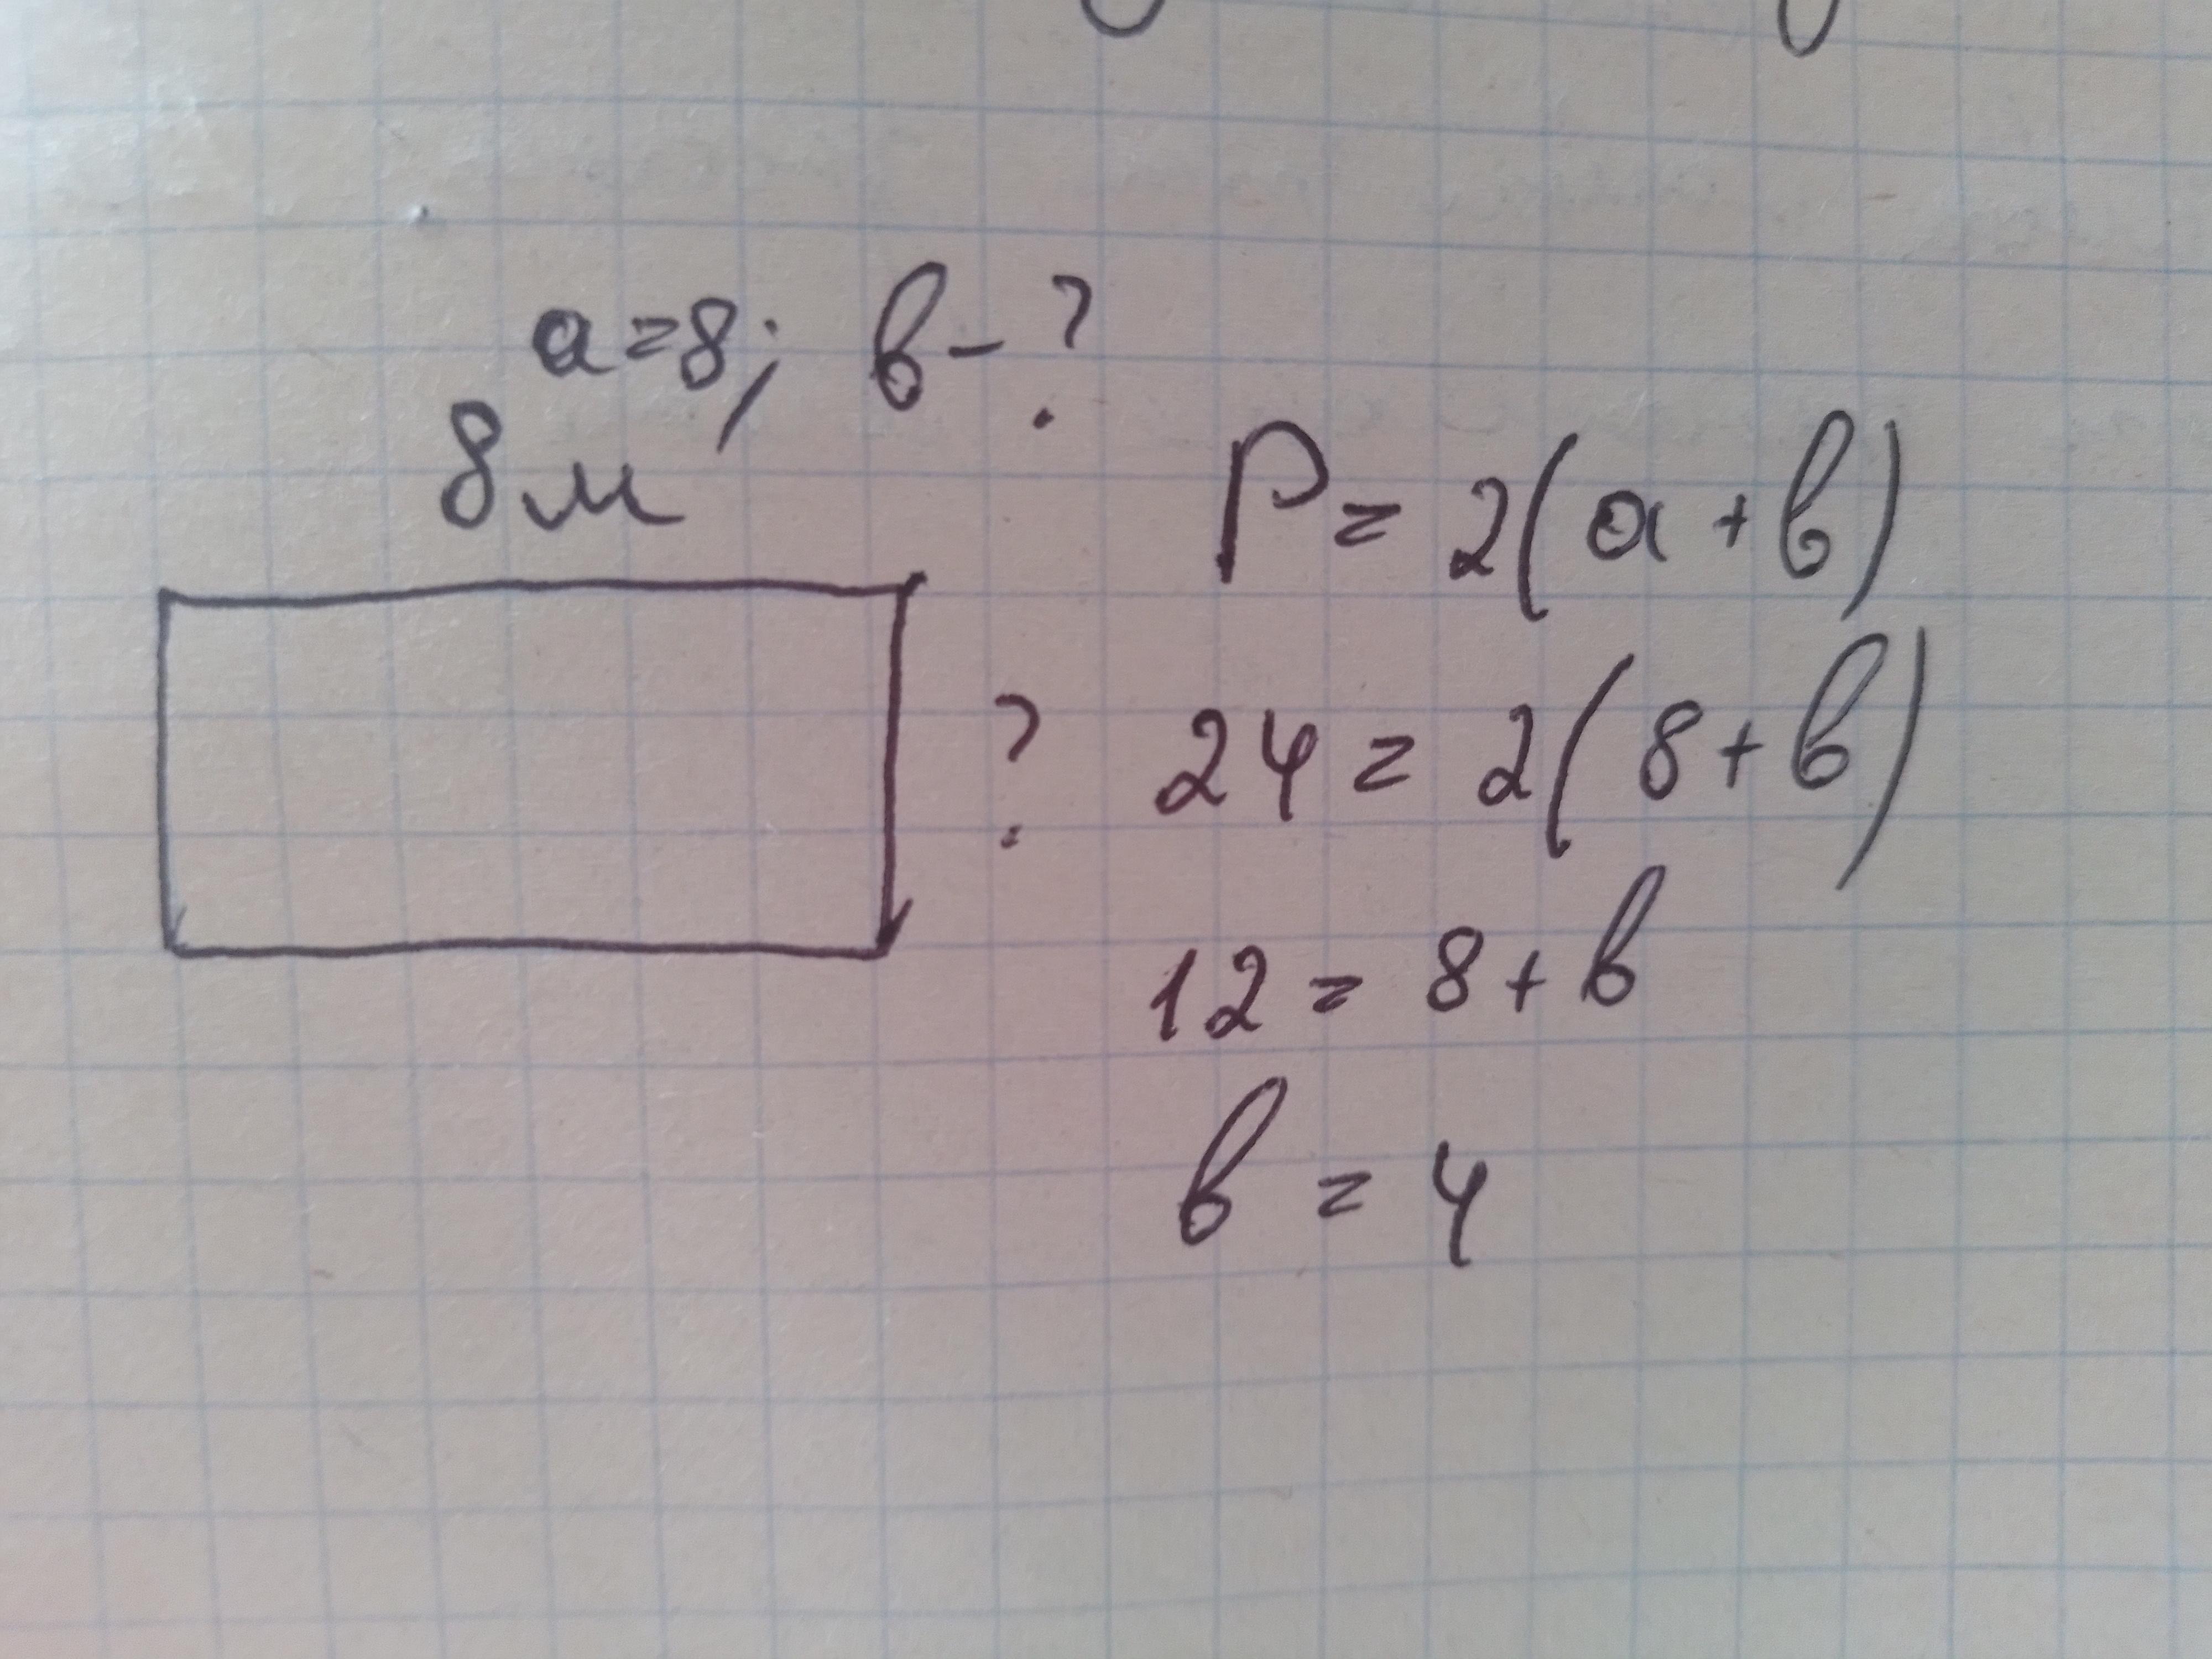 a=8; в-?
8м
?
P = 2(a+в)
24 = 2(8+в)
12 = 8+в
в = 4